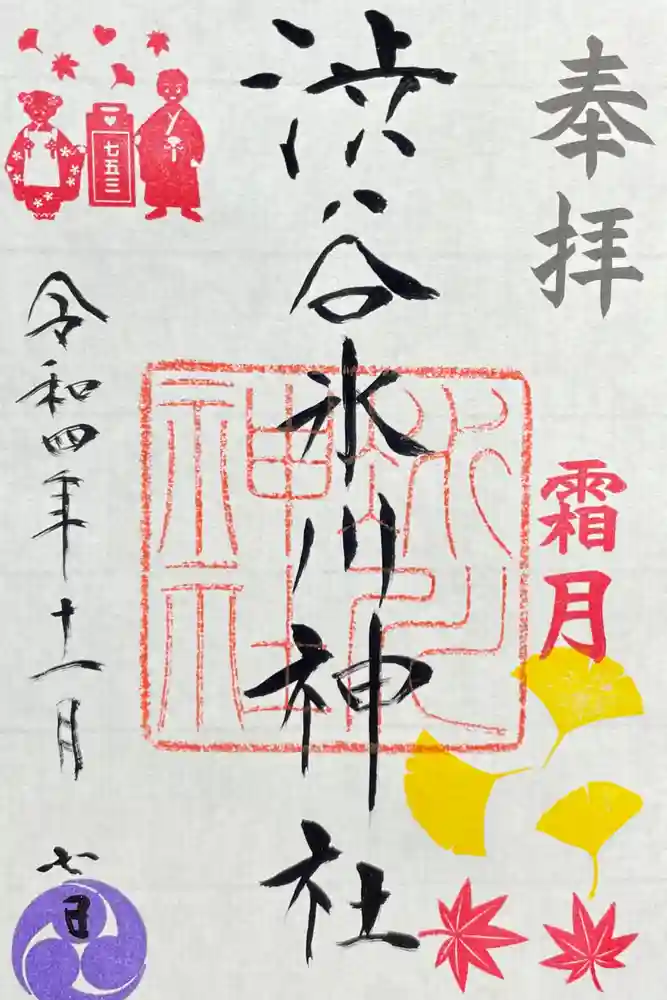 奉拝
霜月
渋谷氷川神社
七五三
令和四年十一月七日